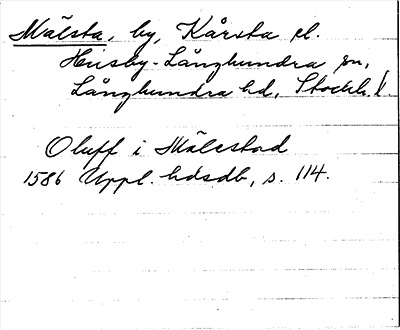 Mälsta, by, Kårsta el.
Husby-Långhundra sn,
Långhundra hd, Stockh. l.
Oluff i Mälestad
1586 Uppl. hdsdb, s. 114.